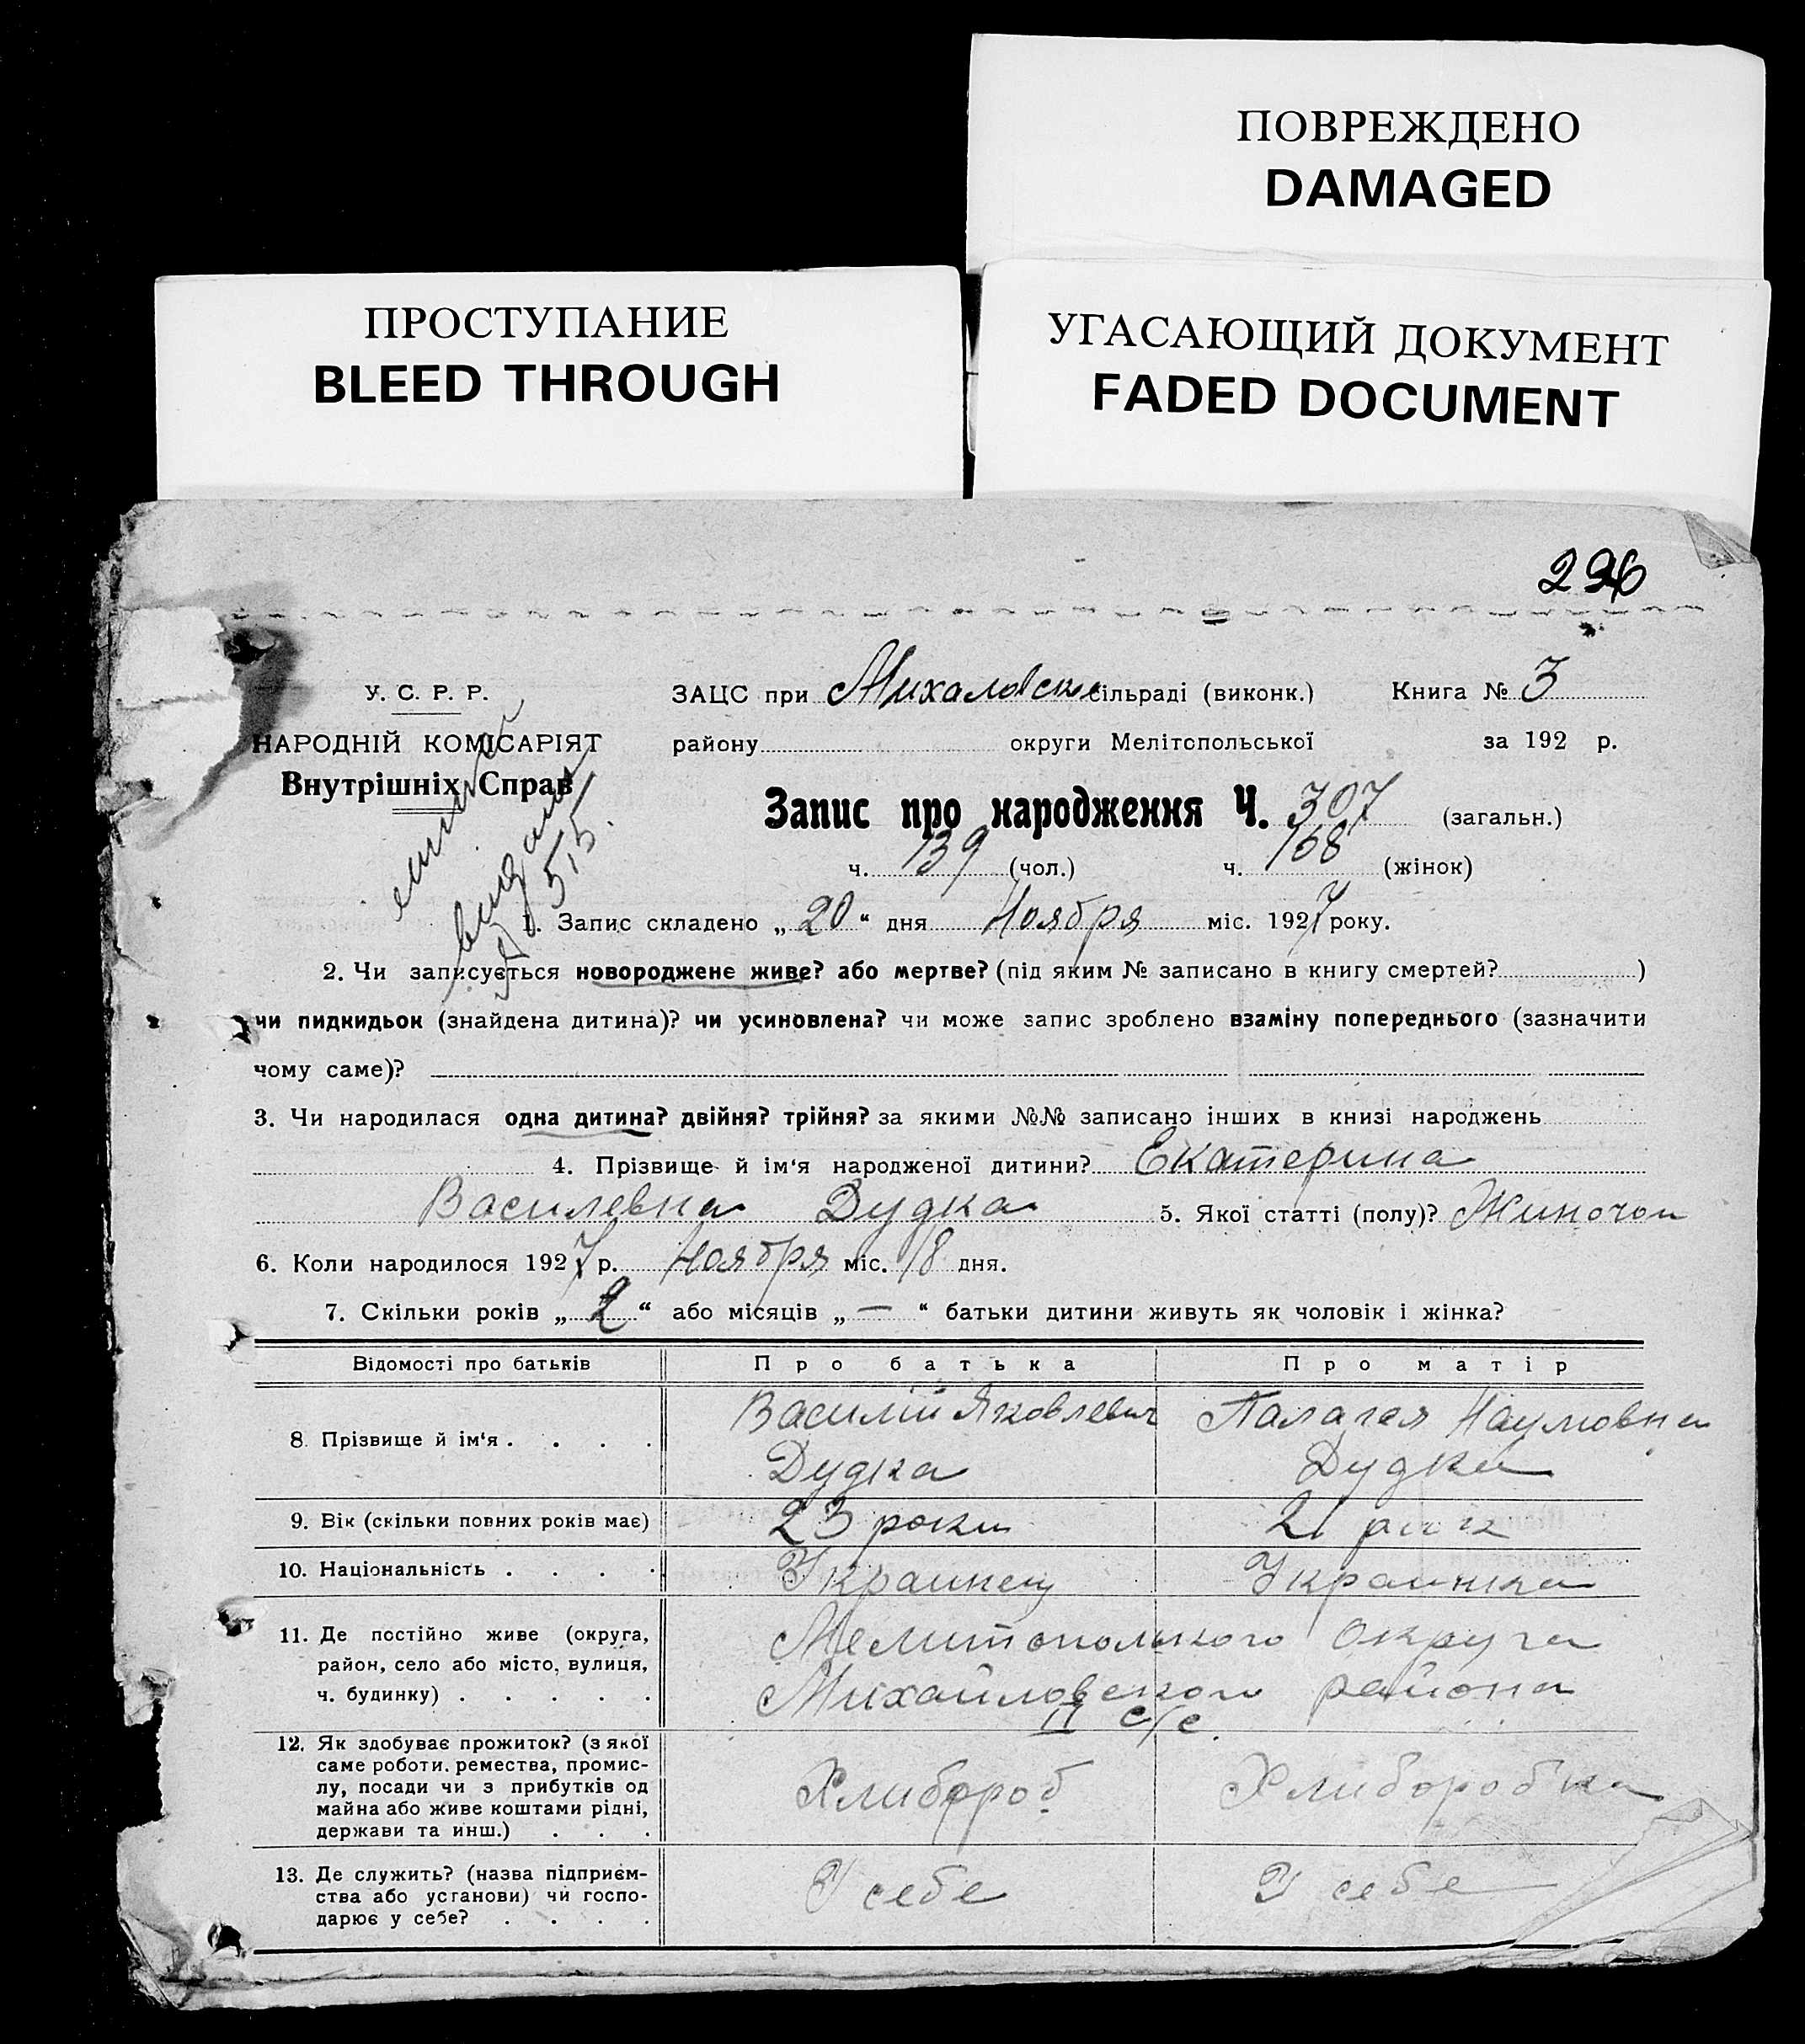 ПОВРЕЖДЕНО
DAMAGED
ПРОСТУПАНИЕ
BLEED THROUGH
УГАСАЮЩИЙ ДОКУМЕНТ
FADED DOCUMENT
296
У. С. Р. Р.
НАРОДНІЙ КОМІСАРІЯТ
Внутрішніх Справ
ЗАЦС при Михаловск сільраді (виконк.) Книга № 3
району округи Мелітопольської за 192 р.
Запис про народження Ч. 307 (загальн.)
ч. 139 (чол.) ч. 168 (жінок)
1. Запис складено „ 20 “ дня Ноября міс. 1927 року.
2. Чи записується новороджене живе? або мертве? (під яким № записано в книгу смертей? )
чи пидкидьок (знайдена дитина)? чи усиновлена? чи може запис зроблено взаміну попереднього (зазначити
чому саме)?
3. Чи народилася одна дитина? двійня? трійня? за якими №№ записано інших в книзі народжень
4. Прізвище й ім‘я народженої дитини? Екатерина
Василевна Дудка 5. Якої статті (полу)? Жиночои
6. Коли народилося 1927 р. Ноября міс. 18 дня.
7. Скільки років „ 2 “ або місяців „ — “ батьки дитини живуть як чоловік і жінка?
Відомості про батьків Про батька Про матір
8. Прізвище й ім‘я . . . . Василій Яковлевич Палагая Наумовна
Дудка Дудка
9. Вік (скільки повних років має) 23 роки 21 рик
10. Національність . . . . Украинец Украинка
11. Де постійно живе (округа, район, село або місто, вулиця, ч. будинку) . . . . . Мелитополького округа
Михайловского района
II с/с.
12. Як здобуває прожиток? (з якої
саме роботи, ремества, промис-
лу, посади чи з прибутків од
майна або живе коштами рідні,
держави та инш.) . . . Хлибороб Хлиборобка
13. Де служить? (назва підприєм-
ства або установи) чи госпо-
дарює у себе? . . . . У себе У себе